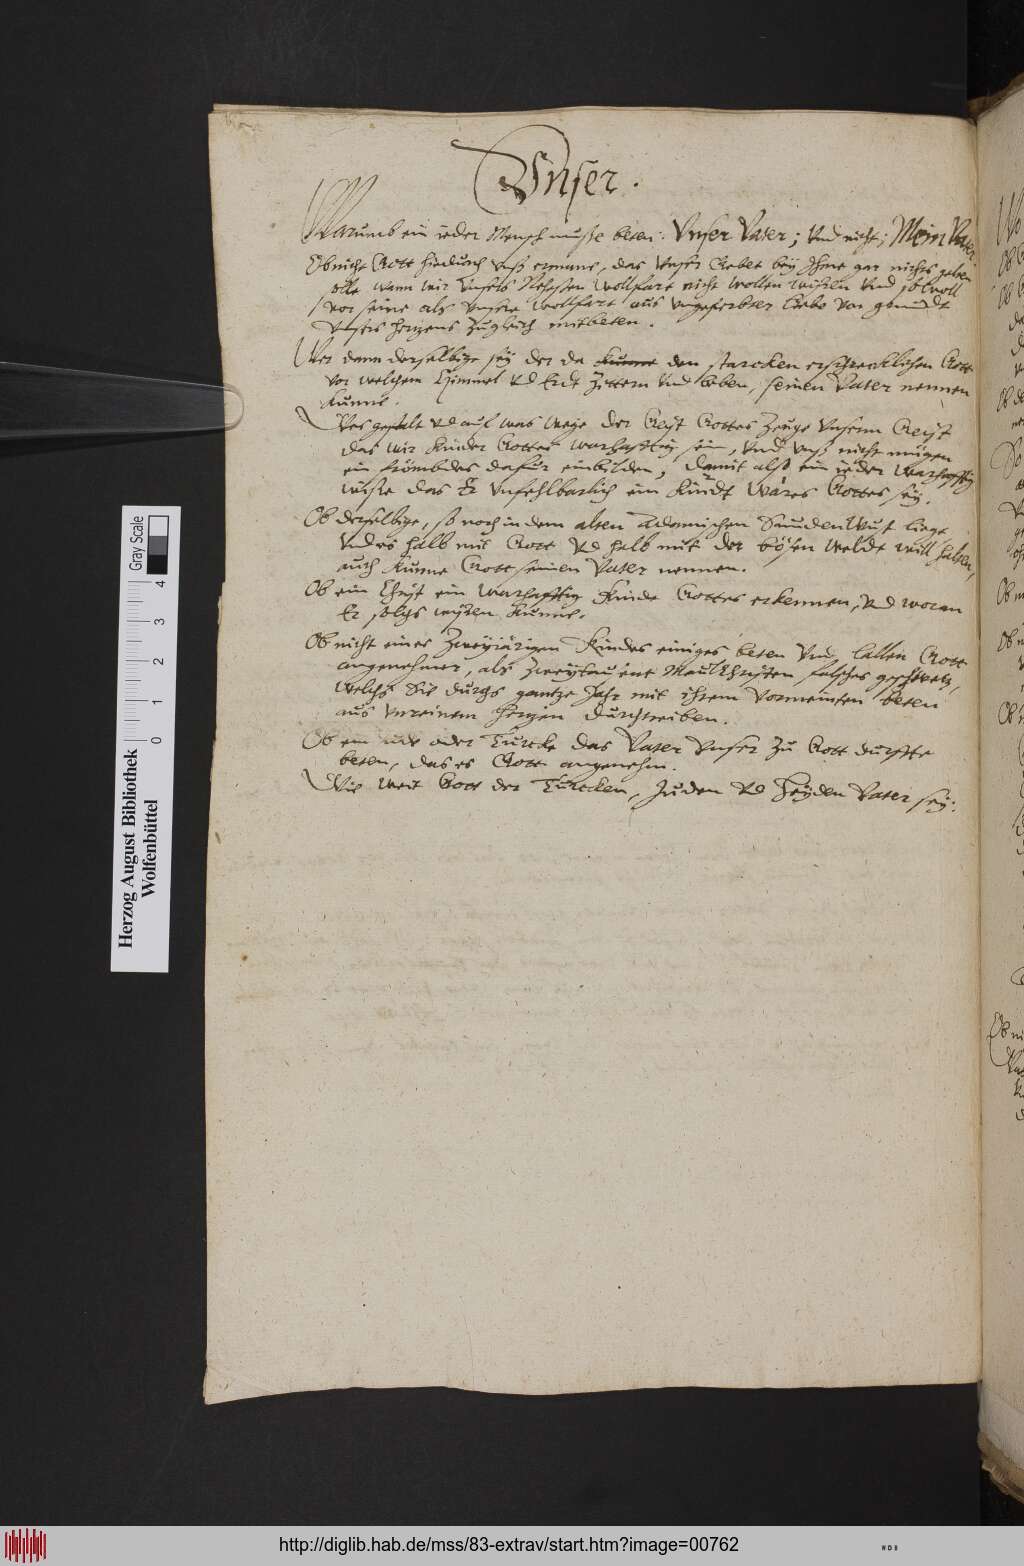 Vnser.
Warumb ein ieder Mensch muße beten: Vnser Vater; Vnd nicht; Mein Vater.
Ob nicht Gott hiedurch vnß ermane, das vnser Gebet bey Ihme gar nichts gelten
solle wann wir Vnsers Nehesten wollfart nicht wollen wißen Vnd so woll
vor seine als vnsere wollfart aus vngeferbter liebe von grundt
Vnsers Hertzens zugleich mitbeten.
Wer dann derselbige sey der da kunne den starcken erschrecklichen Gott
vor welchem Himmel Vd Erde zittern Vnd beben, seinen Vater nennen
kunne.
Wes gestalt Vd auf was weise der Geist Gottes Zeuge Vnserm Geist
das wir Kinder Gottes warhafftig sein, Vnd vnß nicht mugen
ein frömbdes dafur einbilden, damit alß ein ieder warhafftig
wiße das Er Vnfehlbarlich ein Kindt wares Gottes sey.
Ob derselbige, so noch in dem alten Adamischen Sunden Wust liege,
Vnd es halb mit Gott Vd halb mit der bösen weldt will halten,
auch kunne Gott seinen Vater nennen.
Ob ein Christ ein warhafftig Kinde Gottes erkennen, Vd woran
Er solchs wißen kunne.
Ob nicht eines Zweyiärigen Kindes einiges beten Vnd lallen Gott
angenehmer, als Zweytausent Maul Christen falsches geschwetz,
welchs Sie durchs gantze Jahr mit ihrem vormeinten beten
aus vnreinem Hertzen durchtreiben.
Ob ein Jude oder Turcke das Vater Vnser zu Gott durffte
beten, das es Gott angenehm.
Wie weit Gott der Türcken, Juden Vd Heyden Vater sey.
Herzog August Bibliothek
Wolfenbüttel
0 1 2 3 4
Gray Scale
http://diglib.hab.de/mss/83-extrav/start.htm?image=00762